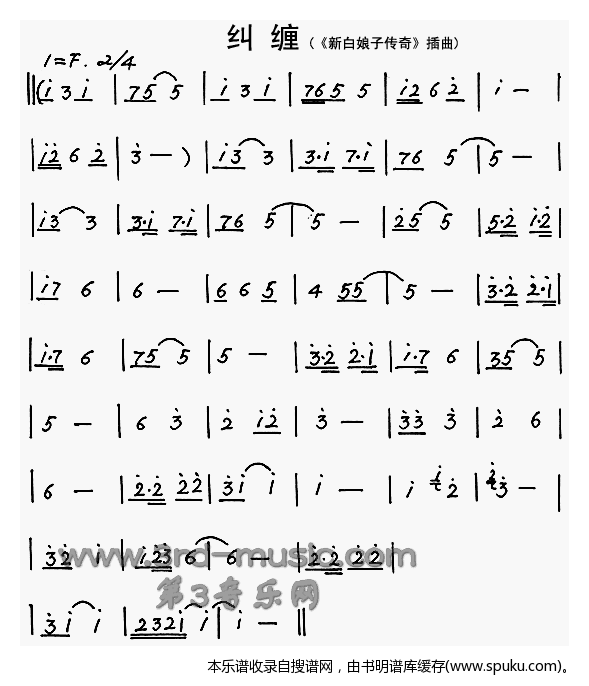 纠 缠（《新白娘子传奇》插曲）
1=F. 2/4
‖(i̇ 3 i̇ | 75 5 | i̇ 3 i̇ | 76 5 5 | i̇2̇ 6 2̇ | i̇ — |
i̇2̇ 6 2̇ | 3̇ — ) | i̇3 3 | 3·i̇ 7·i̇ | 76 5 | 5 — |
i̇3 3 | 3·i̇ 7·i̇ | 76 5 | 5 — | 2̇5 5 | 5·2̇ i̇·2̇ |
i̇7 6 | 6 — | 6 6 5 | 4 55 | 5 — | 3̇·2̇ 2̇·i̇ |
i̇·7 6 | 75 5 | 5 — | 3̇·2̇ 2̇·i̇ | i̇·7 6 | 35 5 |
5 — | 6 3̇ | 2̇ i̇2̇ | 3̇ — | 3̇3̇ 3̇ | 2̇ 6 |
6 — | 2̇·2̇ 2̇2̇ | 3̇i̇ i̇ | i̇ — | i̇ 2̇ | 3̇ — |
| 3̇2̇ i̇ | i̇2̇3̇ 6 | 6 — | 2̇·2̇ 2̇2̇ |
| 3̇i̇ i̇ | 2̇3̇2̇i̇ i̇ | i̇ — ‖
www.3rd-music.com
第3音乐网
本乐谱收录自搜谱网，由书明谱库缓存(www.spuku.com)。